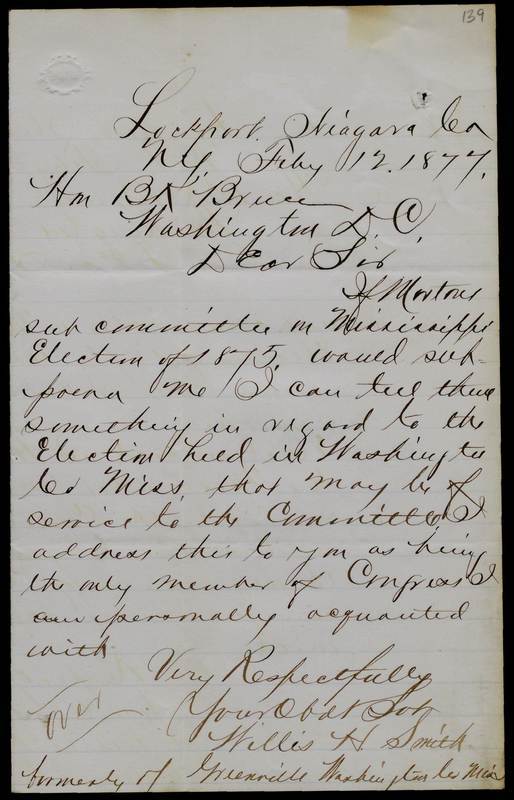 139
Lockport. Niagara Co
NY, Feby 12. 1877.
Hon BK Bruce
Washington D. C.
Dear Sir
If Mortons
sub committee on Mississippi
Election of 1875. would sub-
poena me I can tell them
something in regard to the
Election held in Washington
Co Miss, that may be of
service to the Committee, I
address this to you as being
the only member of Congress I
am personally acquanted
with
Very Respectfully
Your Obdt Svt
Willis H Smith
over
formerly of Greenville Washington Co Miss